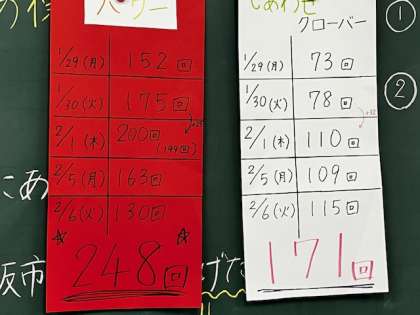 パワー
1/29(月) 152回
1/30(火) 175回
2/1(木) 200回
(199回)
2/5(月) 163回
2/6(火) 130回
☆ ☆
248回
しあわせ
クローバー
1/29(月) 73回
1/30(火) 78回
+32
2/1(木) 110回
2/5(月) 109回
2/6(火) 115回
171回
①
②
にあ
阪市
げた